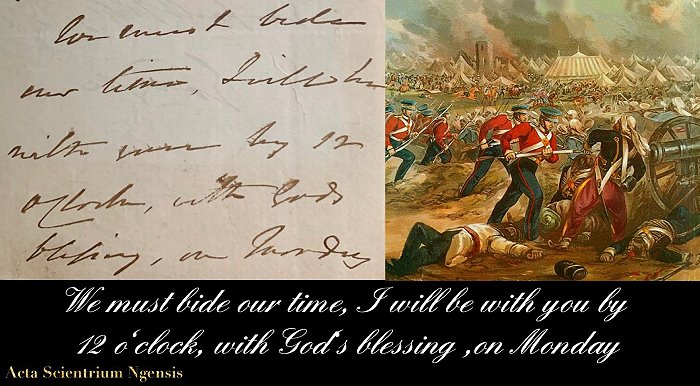 We must bide
our time, I will be
with you by 12
o'Clock, with Gods
blessing, on Monday
We must bide our time, I will be with you by
12 o'clock, with God's blessing ,on Monday
Acta Scientrium Ngensis